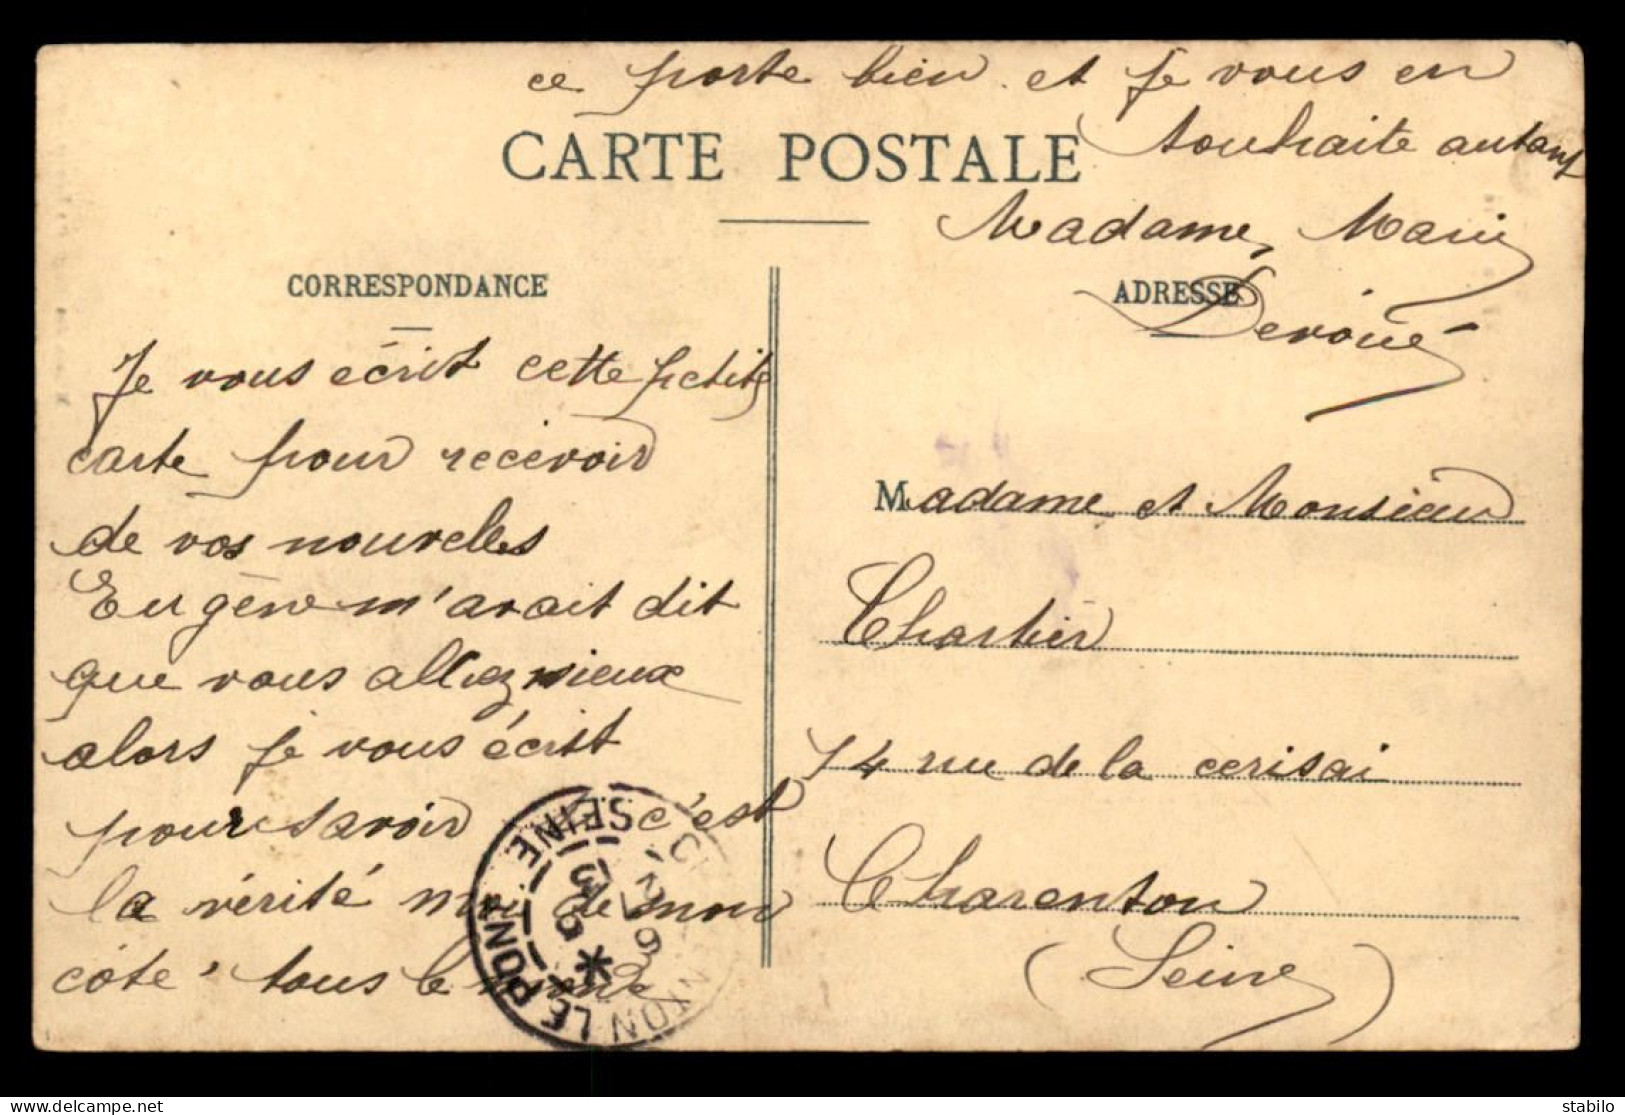 ce porte bien et je vous en
souhaite autant
CARTE POSTALE
Madame Marie
CORRESPONDANCE
ADRESSE
Je vous écrit cette petite
carte pour recevoir
de vos nouvelles
Eugène m'avait dit
que vous allez mieux
alors je vous écrit
pour savoir si c'est
la vérité moi de mon
côté tous le monde
Madame et Monsieur
Chartier
14 rue de la cerisai
Charenton
(Seine)
CHARENTON LE PONT
SEINE
stabilo